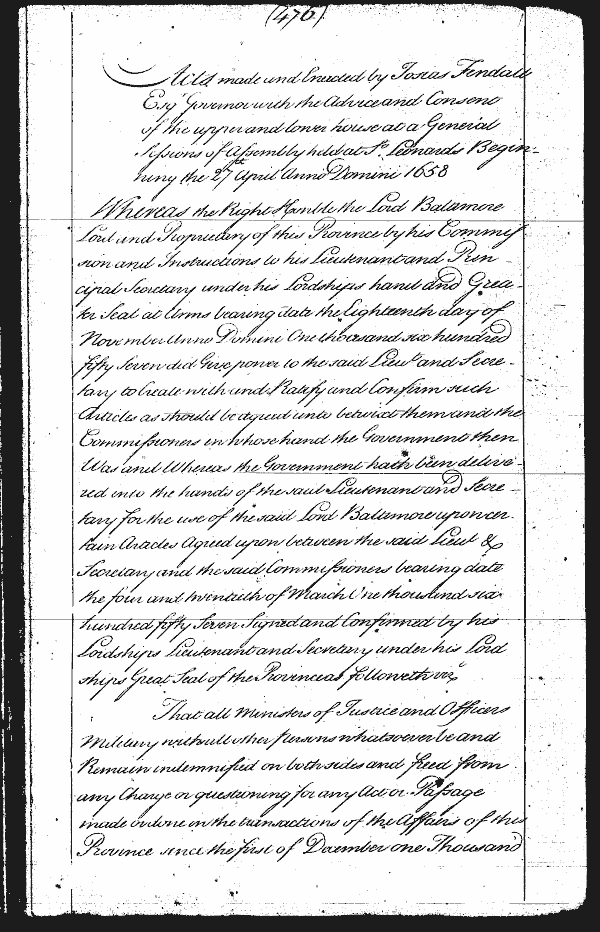 (476)
Acts made and Enacted by Josias Fendall
Esqr Governor with the Advice and Consent
of the upper and lower house at a General
Sessions of Assembly held at St. Leonards Begin-
ning the 27th April Anno Domini 1658
Whereas the Right Honble the Lord Baltamore
Lord and Proprietary of this Province by his Commis
sion and Instructions to his Lieutenant and Prin-
cipal Secretary under his Lordships hand and Grea-
ter Seal at Arms bearing date the Eighteenth day of
November Anno Domini One thousand six hundred
fifty Seven did Give power to the said Lieut and Secre-
tary to treate with and Ratify and Confirm such
Articles as should be agreed unto betwixt them and the
Commissioners in whose hand the Government then
Was and Whereas the Government hath been delive-
red into the hands of the said Lieutenant and Secre-
tary for the use of the said Lord Baltamore upon cer-
tain Articles Agreed upon between the said Lieut &
Secretary and the said Commissioners bearing date
the four and twentieth of March One thousand six
hundred fifty Seven Signed and Confirmed by his
Lordships Lieutenant and Secretary under his Lord
ships Great Seal of the Province as followeth viz
That all Ministers of Justice and Officers
Military with all other persons whatsoever be and
Remain indemnified on both sides and freed from
any Charge or questioning for any Act or Passage
made or done in the transactions of the Affairs of this
Province since the first of December one Thousand